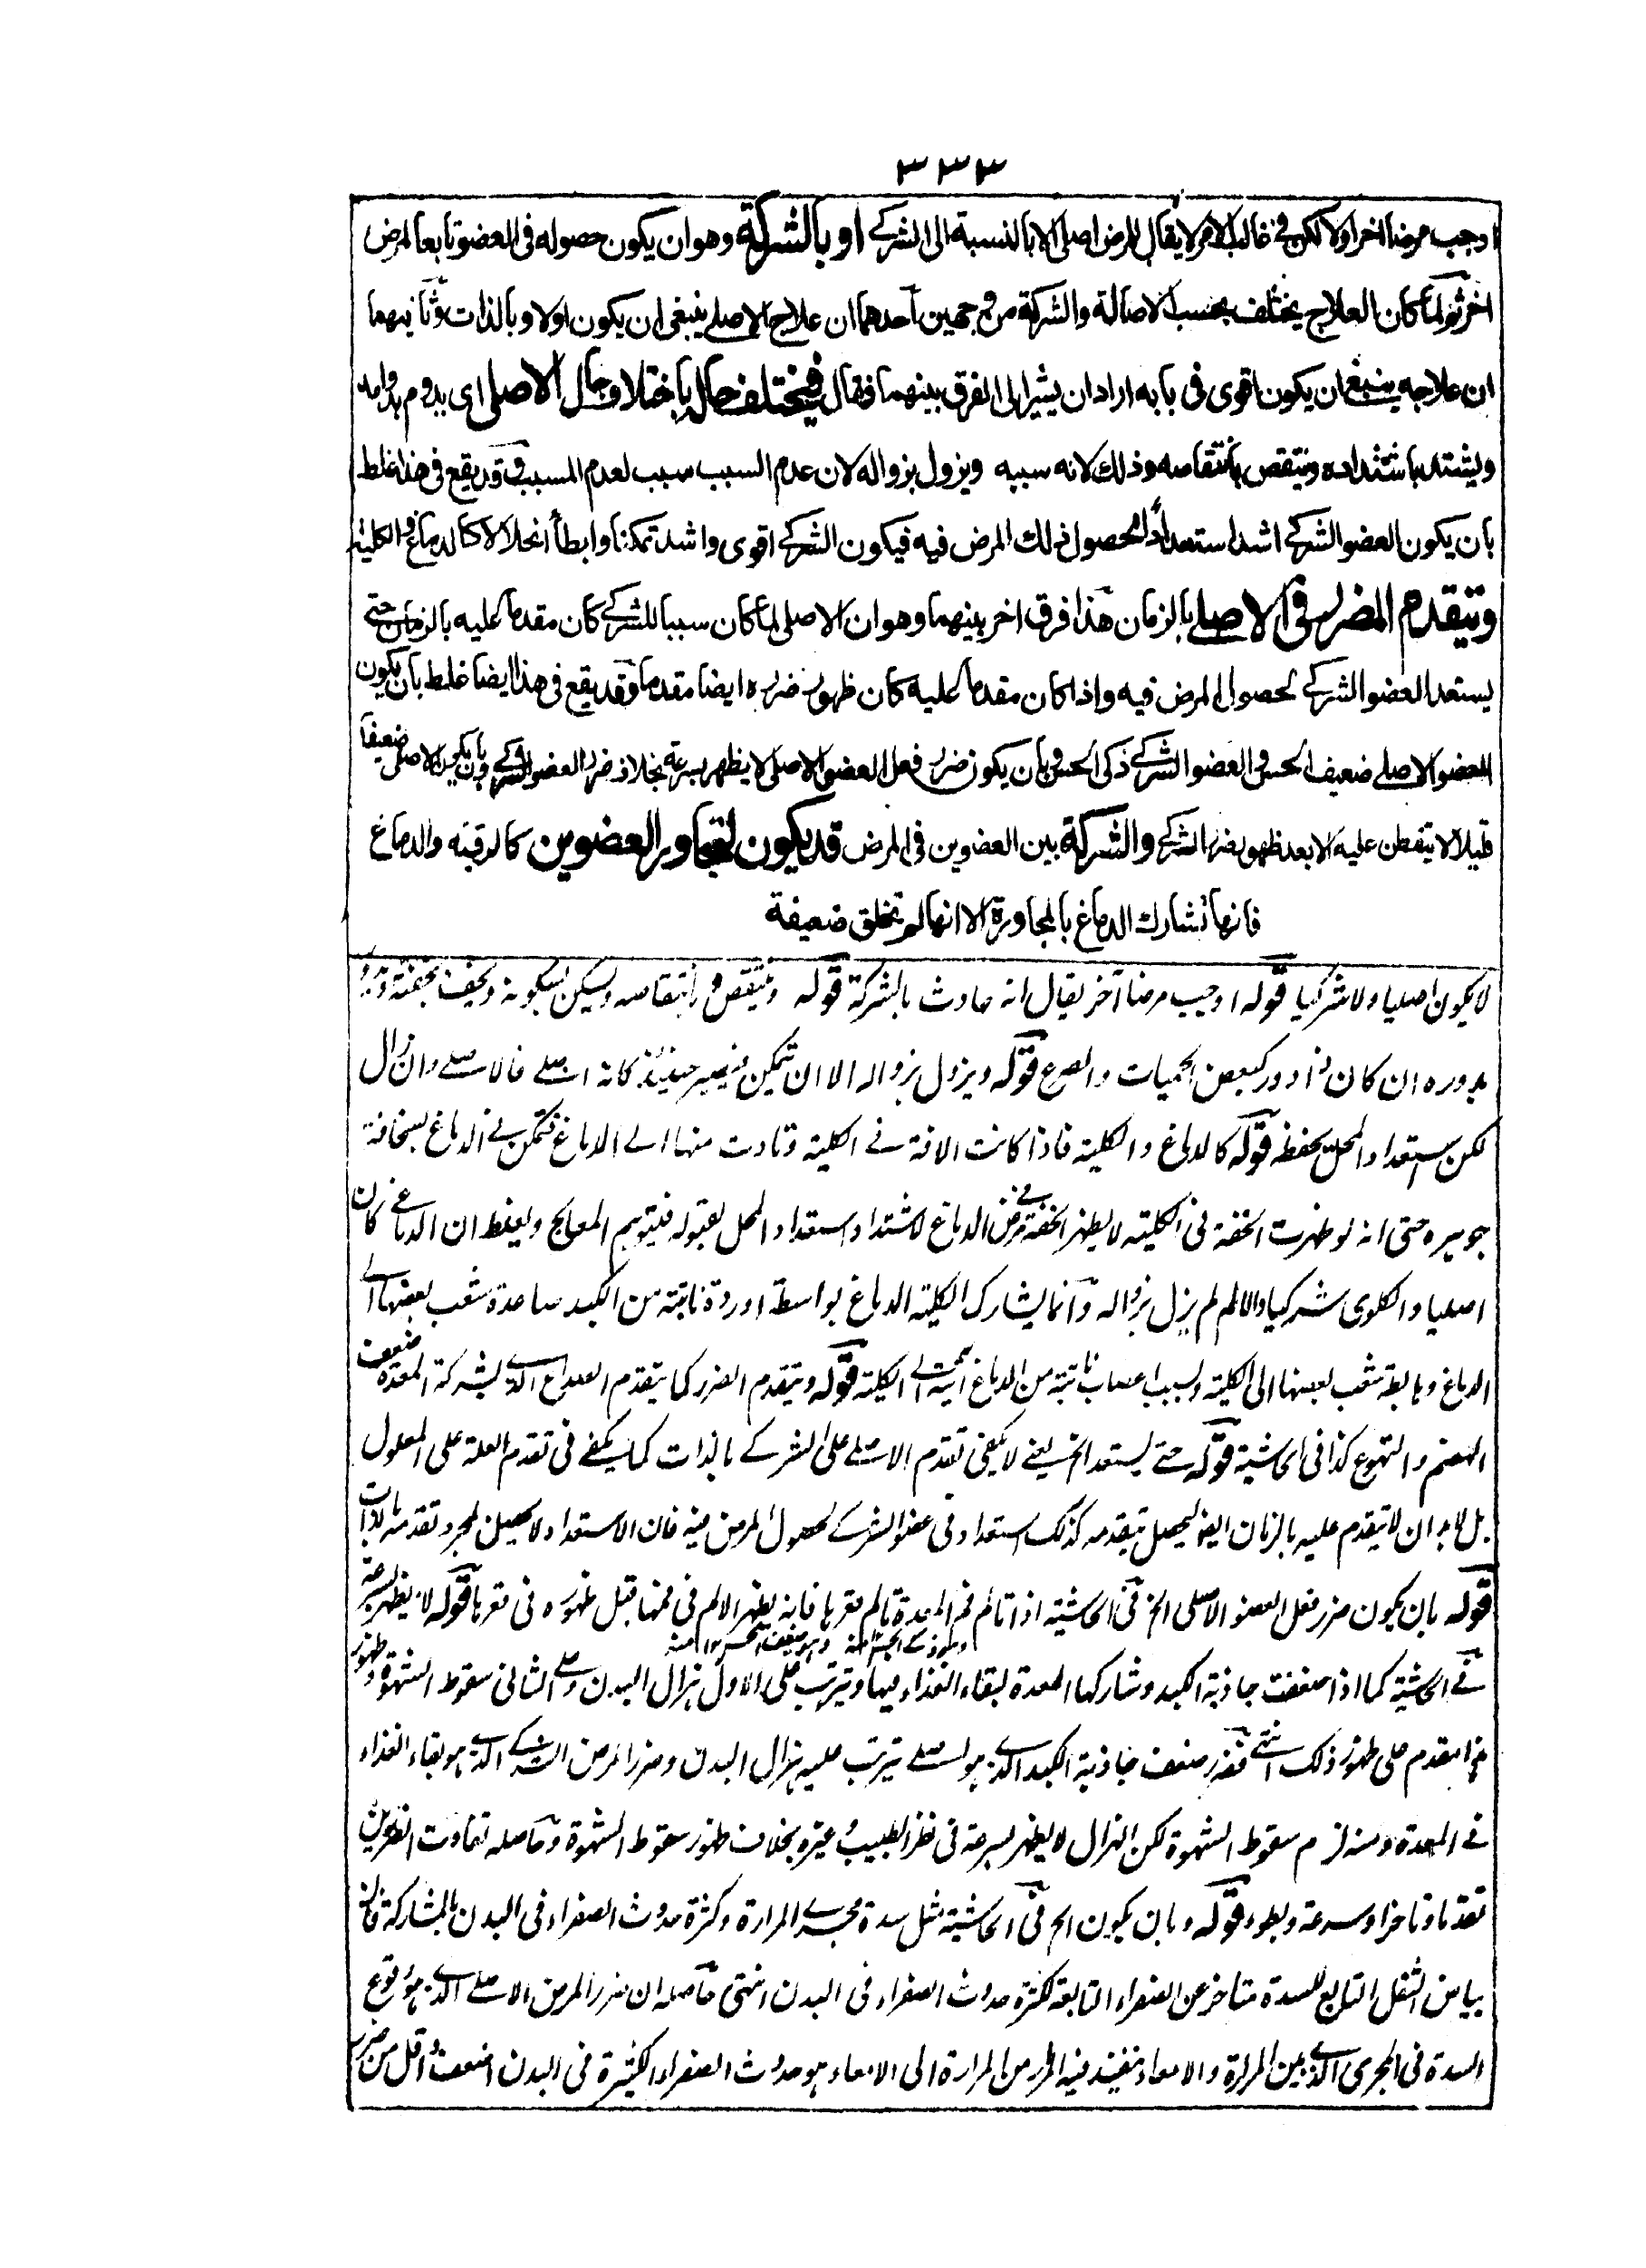 ٣٣٣
اوجب مرضا اخر اولا لكن فى غالب الامر لا يقال للمرض اصلى الا بالنسبة الى الشركے او بالشركة وهو ان يكون حصوله فى العضو تابعا لمرض
اخر ثم لما كان العلاج يختلف بحسب الاصالة والشركة من وجهين احدهما ان علاج الاصلے ينبغى ان يكون اولا وبالذات وثانيهما
ان علاجه ينبغے ان يكون اقوى فى بابه اراد ان يشير الى الفرق بينهما فقال فيختلف حاله باختلاف حال الاصلى اى يدوم بدوامه
ويشتد باشتداده وينتقص بانتقاصه وذلك لانه سببه ويزول بزواله لان عدم السبب سبب لعدم المسبب وقد يقع فى هذا غلط
بان يكون العضو الشركے اشد استعدادا لحصول ذلك المرض فيه فيكون الشركے اقوى واشد تمكنا وابطأ انحلالا كالدماغ والكلية
ويتقدم الضرر فى الاصلے بالزمان هذا فرق اخر بينهما وهو ان الاصلى لما كان سببا للشركے كان مقدما عليه بالزمان حتے
يستعد العضو الشركے لحصول المرض فيه واذا كان مقدما عليه كان ظهور ضرره ايضا مقدما وقد يقع فى هذا ايضا غلط بان يكون
العضو الاصلے ضعيف الحس والعضو الشركے ذكى الحس وبان يكون ضرر فعل العضو الاصلى لا يظهر بسرعة بخلاف ضرر العضو الشركے وبان يكون الاصلى ضعيفا
قليلا لا يتفطن عليه الا بعد ظهور ضرر الشركے والشركة بين العضوين فى المرض قد يكون لتجاور العضوين كالرقبة والدماغ
فانها تشارك الدماغ بالمجاورة الا انها لم تخلق ضعيفة
لا يكون اصليا ولا شركيا قوله اوجب مرضا آخر يقال انه حادث بالشركة قوله وينتقص بانتقاصه ويسكن بسكونه ويخف بخفته ويدور
بدوره ان كان ذا دور كبعض الحميات والصرع قوله ويزول بزواله الا ان تمكن فيصير حينئذ كانه اصلے فالاصلے وان زال
لكن استعداد المحل يحفظه قوله كالدماغ والكلية فاذا كانت الافة فے الكلية وتادت منها الے الدماغ فتمكن فے الدماغ لسخافة
جوهره حتى انه لو ظهرت الخفة فى الكلية لا يظهر الخفة فے مرض الدماغ لاشتداد استعداد المحل لقبوله فيتوهم المعالج ويغلط ان الدماغے كان
اصليا والكلوى شركيا والا لم لم يزل بزواله وانما يشارك الكلية الدماغ بواسطة اوردة نابتة من الكبد صاعدة شعب بعضها الے
الدماغ وهابطة شعب بعضها الى الكلية وبسبب اعصاب نابتة من الدماغ آتية الے الكلية قوله ويتقدم الضرر كما يتقدم الصداع الذے بشركة المعدة ضعف
الهضم والتهوع كذا فى الحاشية قوله حتے يستعد الخ يعنے لا يكفى تقدم الاصلے على الشركے بالذات كما يكفے فى تقدم العلة على المعلول
بل لا بد ان يتقدم عليه بالزمان ايضا ليحصل بتقدمه كذلك استعداد فى عضو الشركے لحصول المرض فيه فان الاستعداد لا يحصل بمجرد تقدمه بالذات
قوله بان يكون ضرر فعل العضو الاصلى الخ فى الحاشية اذا تالم فم المعدة تالم مقعرها فانه يظهر الالم فى فمها قبل ظهوره فى مقعرها قوله لا يظهر بسرعة
فے الحاشية كما اذا ضعفت جاذبة الكبد وشاركها المعدة لبقاء الغذاء فيها ويترتب على الاول هزال البدن وعلى الثانى سقوط الشهوة وظهور
هذا مقدم على ظهور ذلك انتهے فضرر ضعف جاذبة الكبد الذے هو اصلے يترتب عليه هزال البدن وضرر المرض الشركے الذے هو بقاء الغذاء
فے المعدة ومنه لزم سقوط الشهوة لكن الهزال لا يظهر بسرعة فى نظر الطبيب وغيره بخلاف ظهور سقوط الشهوة وحاصله تفاوت الضررين
تقدما وتاخرا وسرعة وبطوء قوله وبان يكون الخ فى الحاشية مثل سدة مجرے المرارة وكثرة حدوث الصفراء فى البدن بالمشاركة فان
بياض الثفل التابع للسدة متاخر عن الصفراء التابعة لكثرة حدوث الصفراء فى البدن انتهى حاصله ان ضرر المرض الاصلے الذے هو وقوع
السدة فى المجرى الذے بين المرارة والامعاء ينفيذ فيه المرار من المرارة الى الامعاء هو حدوث الصفراء الكثيرة فى البدن اضعف واقل من ضرر